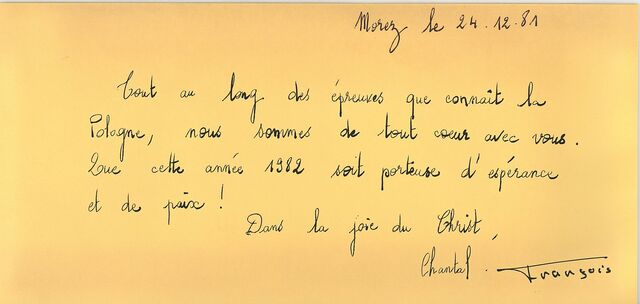 Morez le 24.12.81
Tout au long des épreuves que connaît la
Pologne, nous sommes de tout coeur avec vous.
Que cette année 1982 soit porteuse d'espérance
et de paix !
Dans la joie du Christ,
Chantal. François